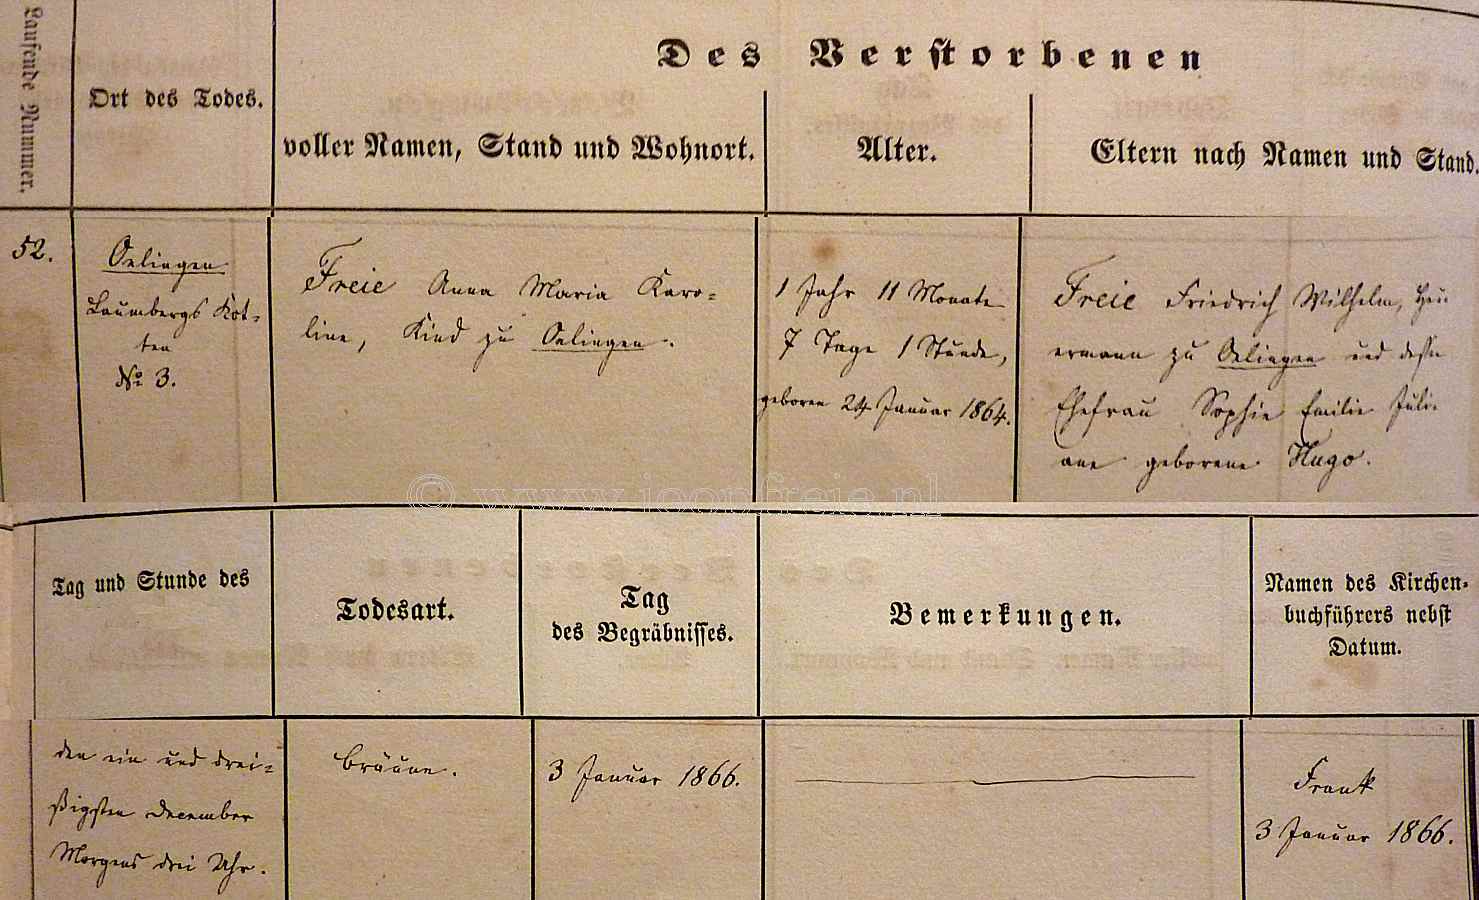 Laufende Nummer.
Ort des Todes.
Des Verstorbenen
voller Namen, Stand und Wohnort.
Alter.
Eltern nach Namen und Stand.
52.
Oelingen
Laumbergs Kot-
ten
No 3.
Freie Anna Maria Karo=
line, Kind zu Oelingen.
1 Jahr 11 Monate
7 Tage 1 Stunde,
geboren 24 Januar 1864.
Freie Friedrich Wilhelm, Heu
ermann zu Oelingen und dessen
Ehefrau Sophie Emilie Juli-
ane geborene Hugo.
© www.joopfreie.nl
Tag und Stunde des
Todesart.
Tag
des Begräbnisses.
Bemerkungen.
Namen des Kirchen-
buchführers nebst
Datum.
den ein und drei=
ßigsten December
Morgens drei Uhr.
Bräune.
3 Januar 1866.
Frank
3 Januar 1866.